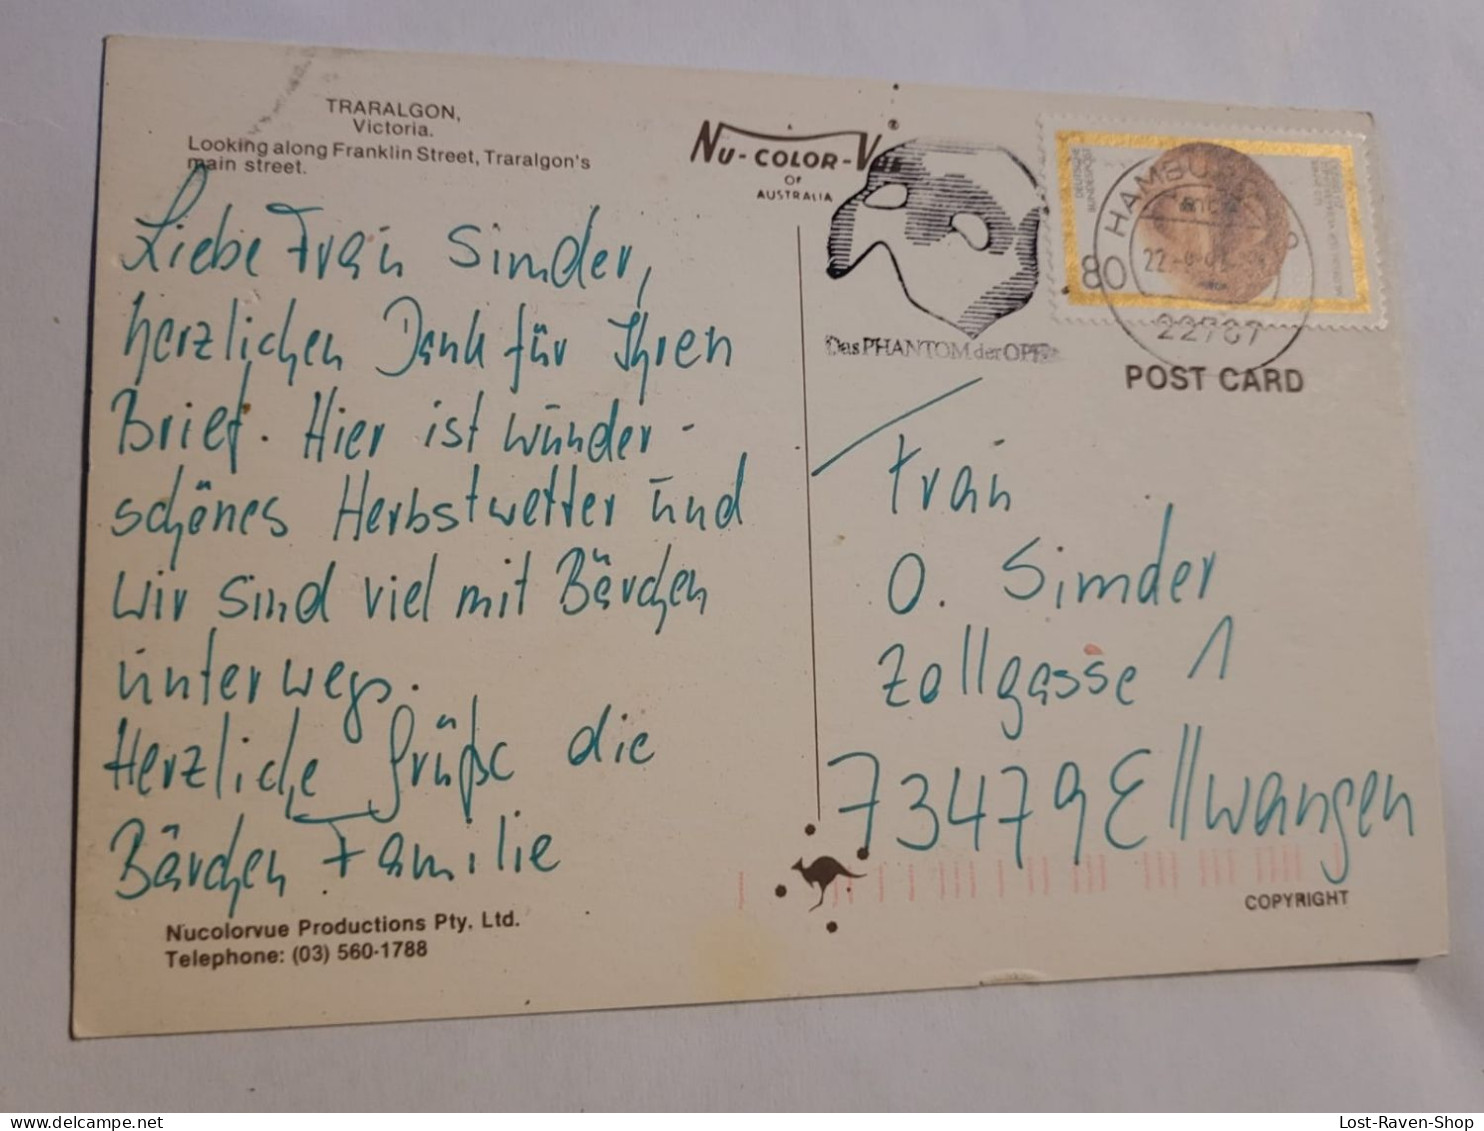 TRARALGON,
Victoria.
Looking along Franklin Street, Traralgon's
main street.
Liebe Frau Simder,
herzlichen Dank für Ihren
Brief. Hier ist wunder-
schönes Herbstwetter und
wir sind viel mit Bärchen
unterwegs.
Herzliche Grüße die
Bärchen Familie
Nucolorvue Productions Pty. Ltd.
Telephone: (03) 560-1788
NU-COLOR-VUE®
OF
AUSTRALIA
Das PHANTOM der OPER
HAMBURG
22
22767
80
POST CARD
Frau
O. Simder
Zollgasse 1
73479 Ellwangen
COPYRIGHT
Lost-Raven-Shop